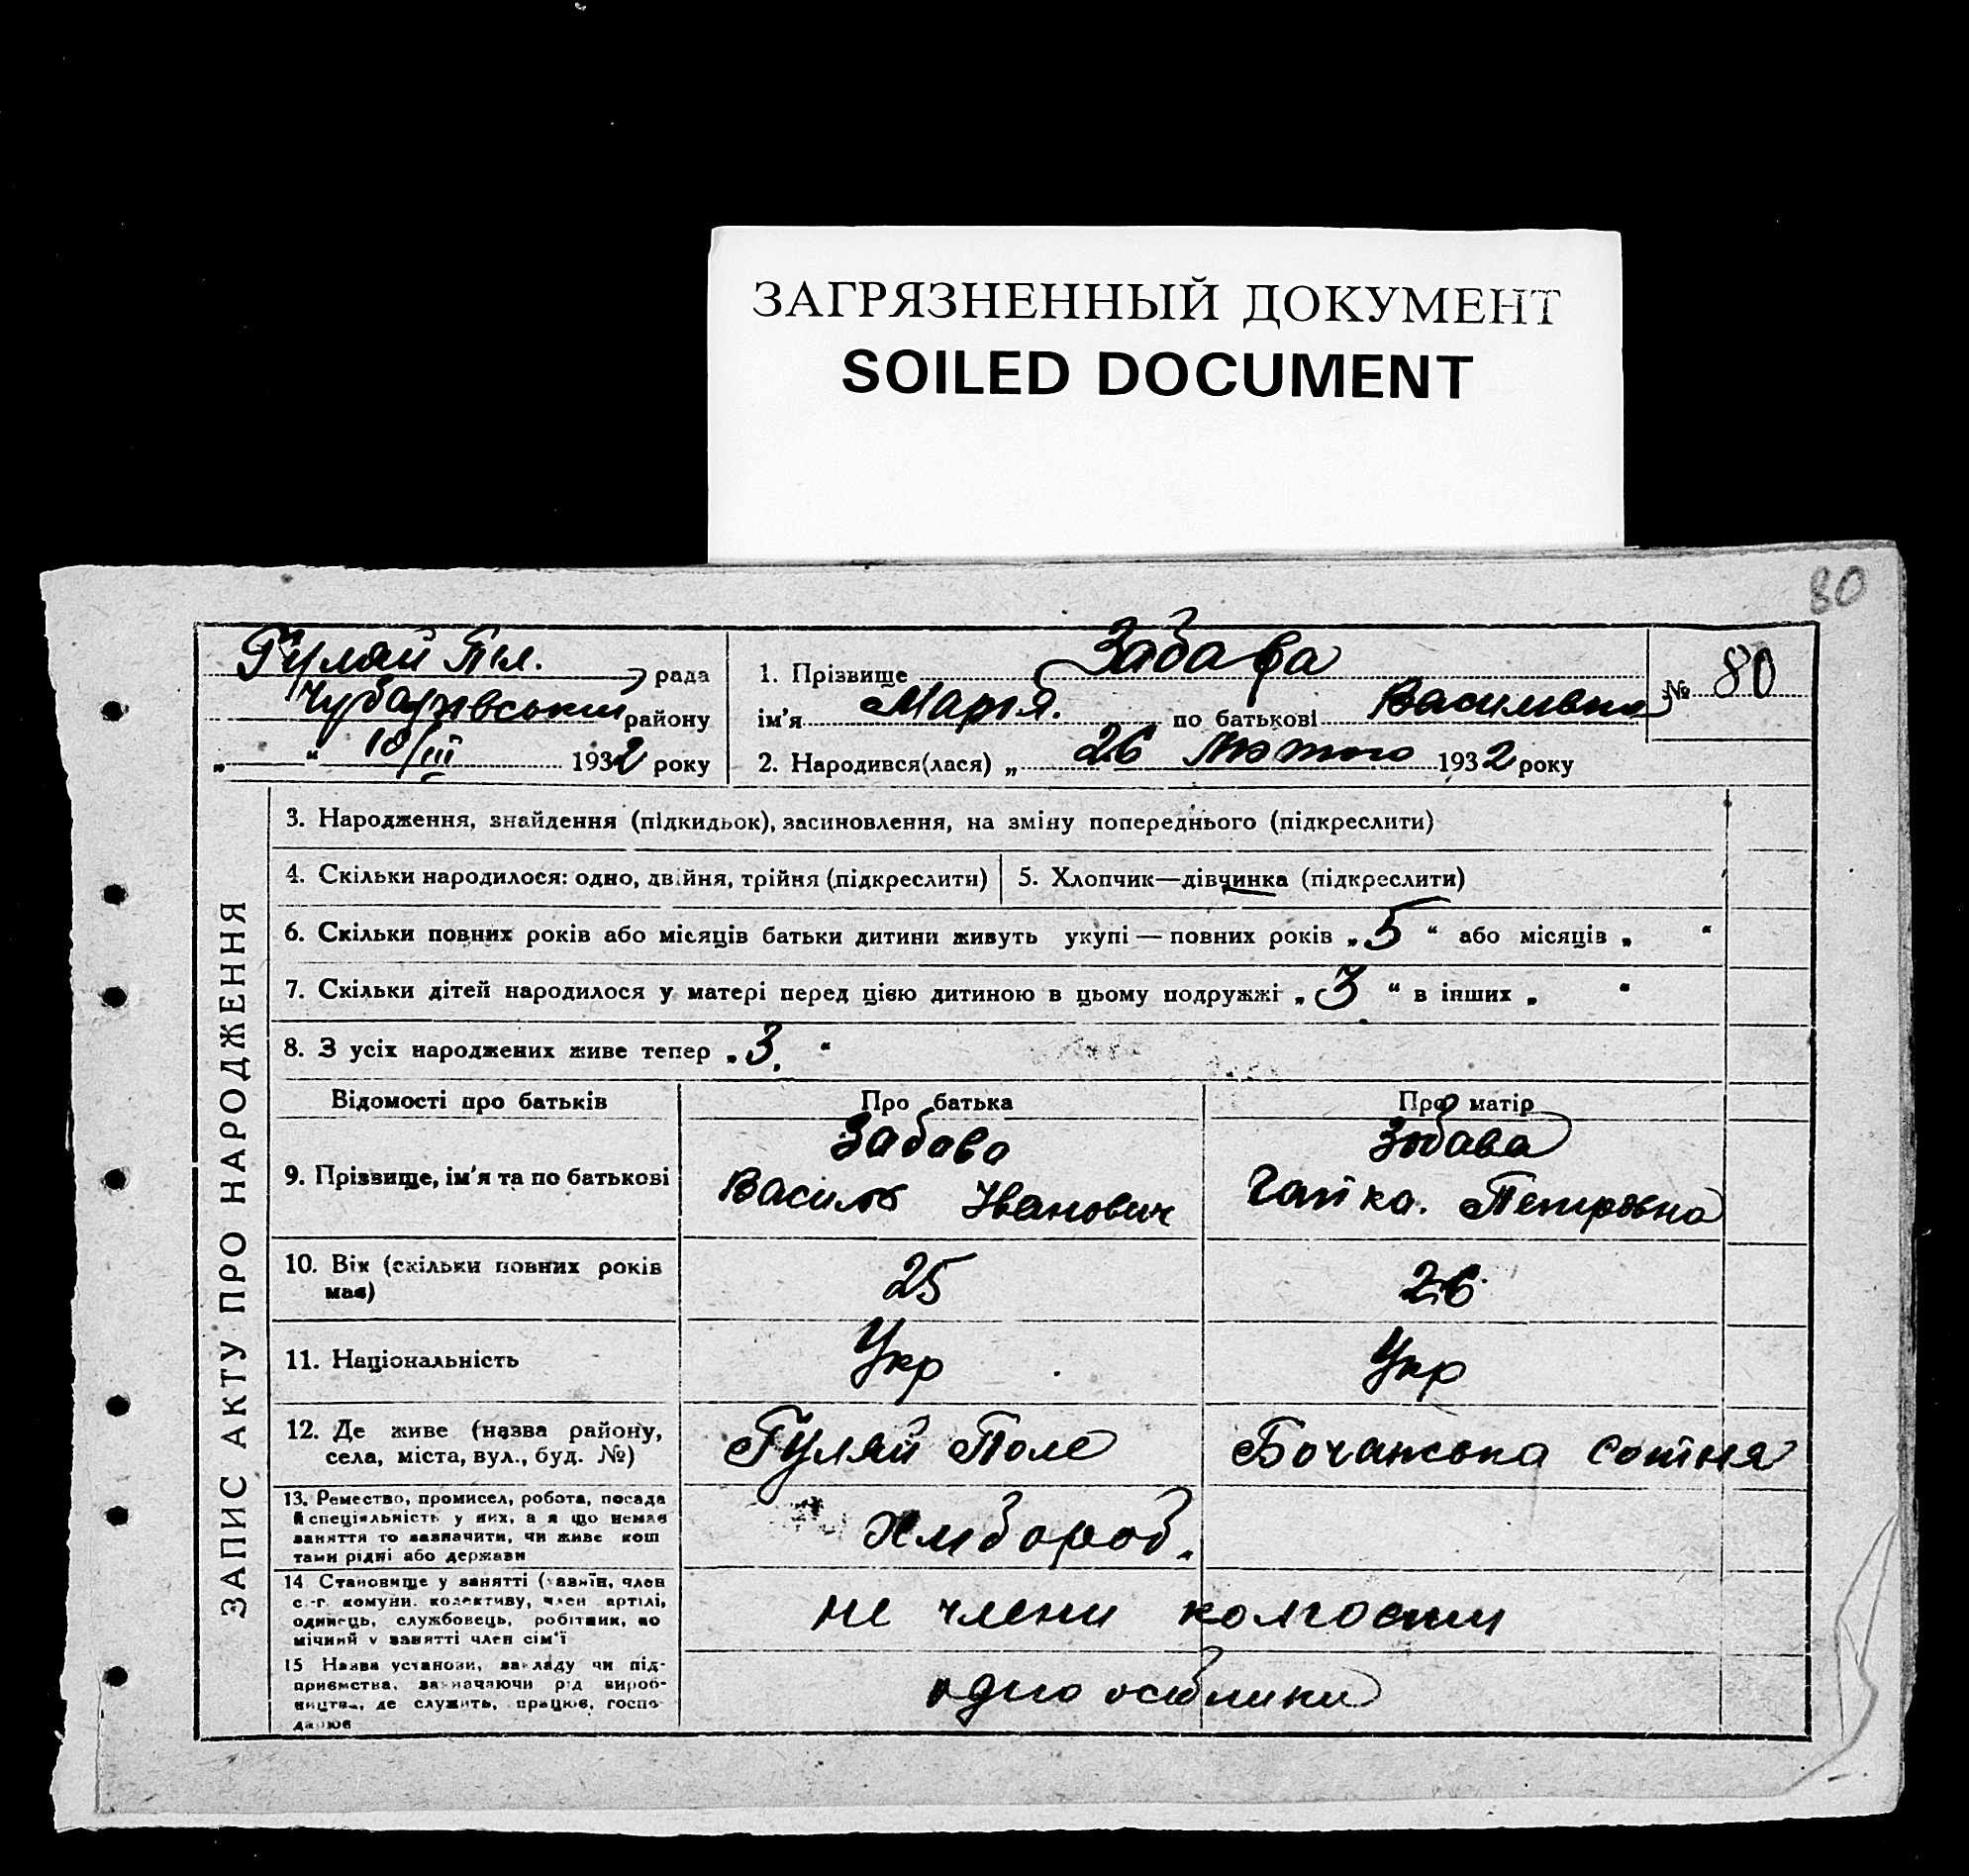 ЗАГРЯЗНЕННЫЙ ДОКУМЕНТ
SOILED DOCUMENT
80
Гуляй Піл. рада
Чубарівський району
„ “ 10/III 1932 року
1. Прізвище Забава
№ 80
ім'я Марія. по батькові Василівна
2. Народився(лася) „ 26 Лютого 1932 року
ЗАПИС АКТУ ПРО НАРОДЖЕННЯ
3. Народження, знайдення (підкидьок), засиновлення, на зміну попереднього (підкреслити)
4. Скільки народилося: одно, двійня, трійня (підкреслити)
5. Хлопчик—дівчинка (підкреслити)
6. Скільки повних років або місяців батьки дитини живуть укупі — повних років „5“ або місяців „ “
7. Скільки дітей народилося у матері перед цією дитиною в цьому подружжі „3“ в інших „ “
8. З усіх народжених живе тепер „3.“
Відомості про батьків Про батька Про матір
9. Прізвище, ім'я та по батькові
Забава
Василь Іванович
Забава
Петровна
10. Вік (скільки повних років
має)
25
26
11. Національність
Укр
Укр
12. Де живе (назва району,
села, міста, вул., буд. №)
Гуляй Поле
Бочанська сотня
13. Ремество, промисел, робота, посада
й спеціяльність у них, а я що немає
заняття то зазначити, чи живе кош
тами рідні або держави
Хлібороб.
14 Становище у занятті (хазяїн, член
с.-г. комуни. колективу, член артілі,
одинець, службовець, робітник, по
мічний у занятті член сім'ї
не члени
15 Назва установи, закладу чи під-
приємства, зазначаючи рід вироб-
ництва, де служить, працює, госпо-
дарює
одноосібники